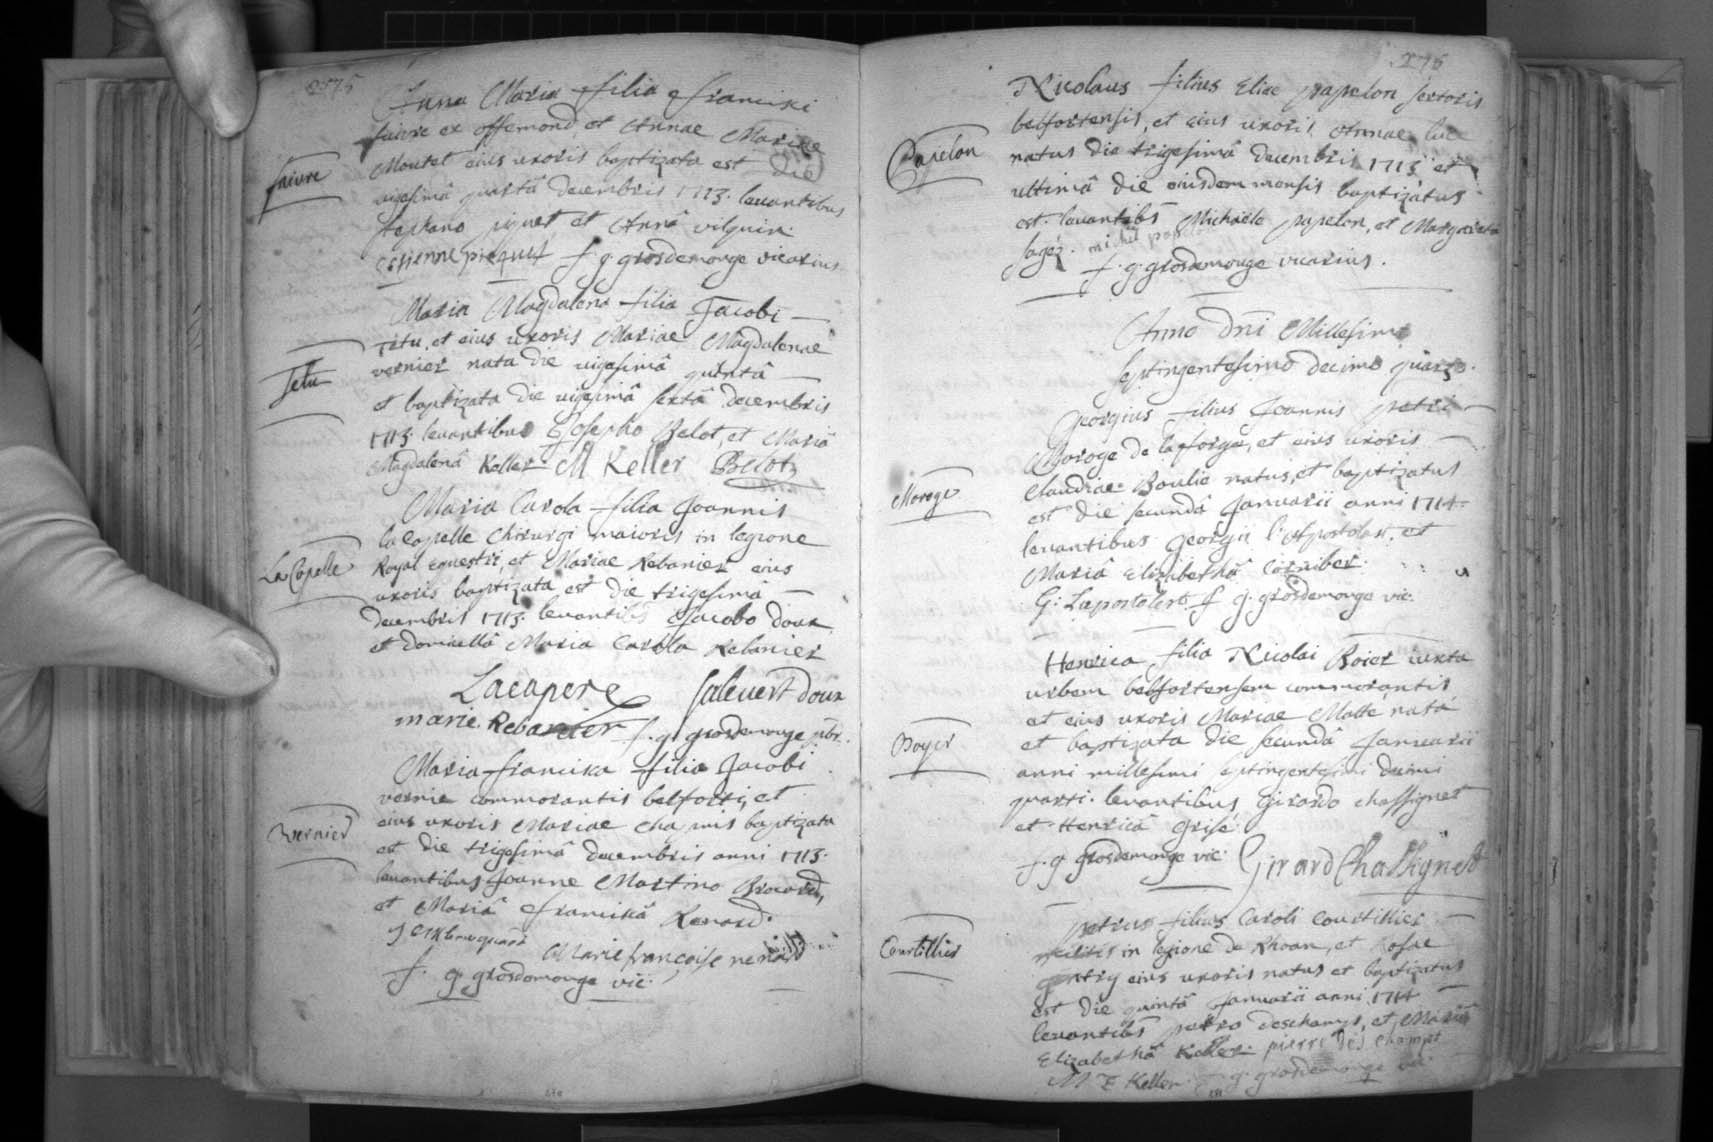 2575
Anna Maria filia francisci
faivre ex offemond, et Annae Mariae
faivre
Moutet eius uxoris baptizata est die
vigesimâ quartâ decembris 1713. levantibus
stephano piquet et Annâ vilquin.
estienne piequet f. g. grosdemouge vicarius
Maria Magdalena filia Jacobi
Tetu, et eius uxoris Mariae Magdalenae
Tetu
vernier nata die vigesimâ quintâ
et baptizata die vigesimâ sextâ decembris
1713. levantibus Josepho Belot, et Mariâ
Magdalenâ Keller M Keller Belot
Maria Carola filia Joannis
la Capelle Chirurgi maioris in legione
La Capelle
Royal equestri, et Mariae Rebanier eius
uxoris baptizata est die trigesimâ
decembris 1713. levantibs Jacobo doux
et domicellâ Maria Carola Rebanier
Lacapere Salevert doux
marie Rebanier f. g. grosdemouge pbr.
Maria francisca filia Jacobi
vernie commorantis belforti, et
vernier
eius uxoris Mariae baptizata
est die trigesimâ decembris anni 1713.
levantibus Joanne Martino Brocard,
et Mariâ franciscâ Renard.
Marie francoise renard
f. g. grosdemouge vic.
276
Nicolaus filius Eliae papelon sartoris
belfortensis, et eius uxoris Annae
Papelon
natus die trigesimâ decembris 1713 et
ultimâ die eiusdem mensis baptizatus
est levantibs Michaele papelon, et Margareta
sagez. michel papelon
f. g. grosdemouge vicarius.
Anno dni Millesimo
septingentesimo decimo quarto.
Georgius filius Joannis petri
Moroge de laforge, et eius uxoris
Moroge
Claudiae Boulie natus, et baptizatus
est die secundâ Januarii anni 1714.
levantibus Georgii l'Apostolart. et
Mariâ Elizabethâ Corniber.
G: Lapostolert f. g. grosdemouge vic.
Henrica filia Nicolai Boier iuxta
urbem belfortensem commorantis
et eius uxoris Mariae Matte nata
Boyer
et baptizata die secundâ Januarii
anni millesimi septingentesimi decimi
quarti. levantibus Girardo chassignet
et Henricâ Grisé
f. g grosdemouge vic. Girard Chassignet
petrus filius Caroli Courtillier
Courtillier
militis in legione de Rhoan, et Rosae
eius uxoris natus et baptizatus
est die quintâ Januarii anni 1714
levantibs petro deschamps, et Mariâ
Elizabethâ Keller. pierre des champt
M E Keller f. g. grosdemouge vic